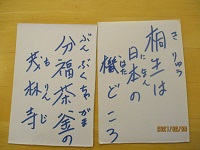 桐生は
きりゅう
日本の
にほん
機どころ
はた
分福茶釜の
ぶんぶくちゃがま
茂林寺
もりんじ